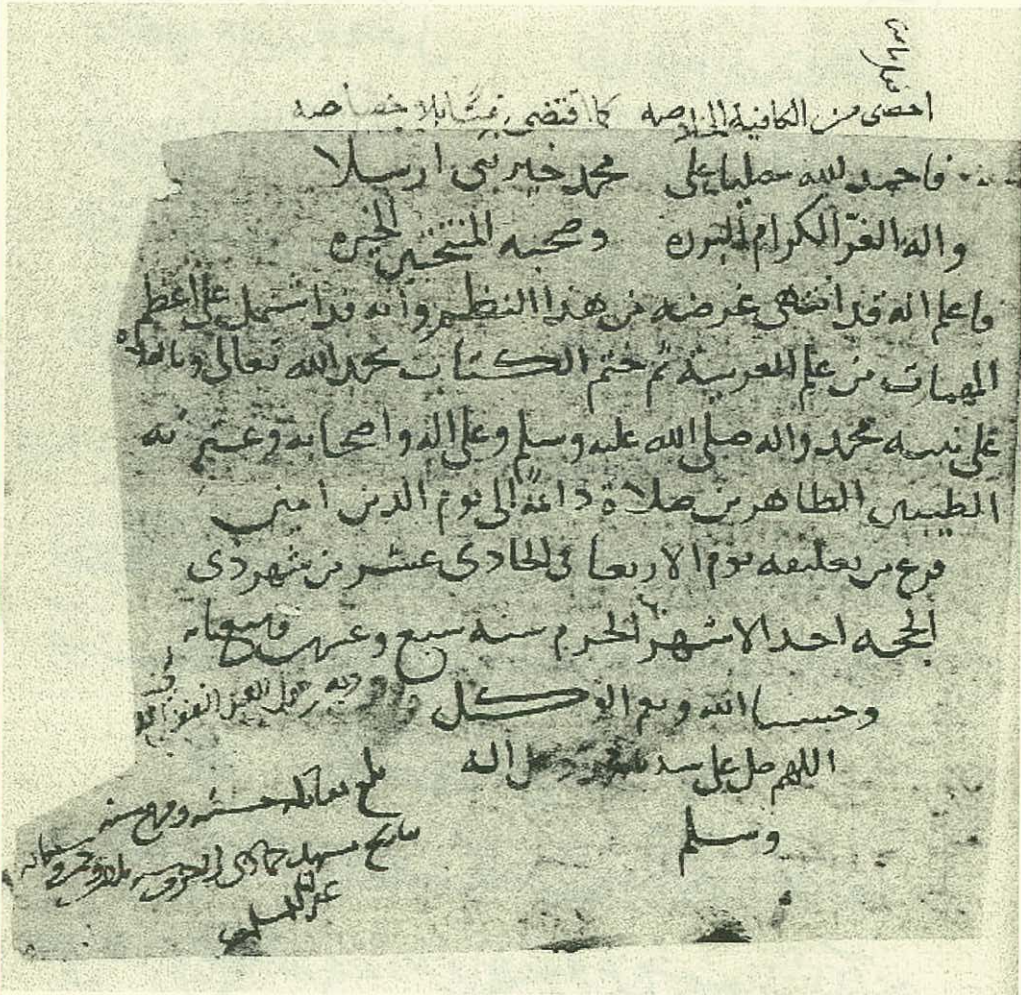 احصى من الكافية الخلاصه كما اقتضى غنى بلا خصاصه
فاحمد لله مصليا على محمد خير نبي ارسلا
واله الغر الكرام البرره وصحبه المنتخبين الخيره
فاعلم انه قد انتهى غرضه من هذا النظم وانه قد اشتمل على اعظم
المهمات من علم العربية تم ختم الكتاب بحمد الله تعالى
على نبيه محمد واله صلى الله عليه وسلم وعلى اله واصحابه وعترته
الطيبين الطاهرين صلاة دائمة الى يوم الدين امين
فرغ من تعليقه يوم الاربعا في الحادي عشر من شهر ذي
الحجه احد الاشهر الحرم سنه سبع وعشرين وسبعمايه
وحسبنا الله ونعم الوكيل
اللهم صل على سيدنا محمد وعلى اله
وسلم
بلغ مقابلة حسنه